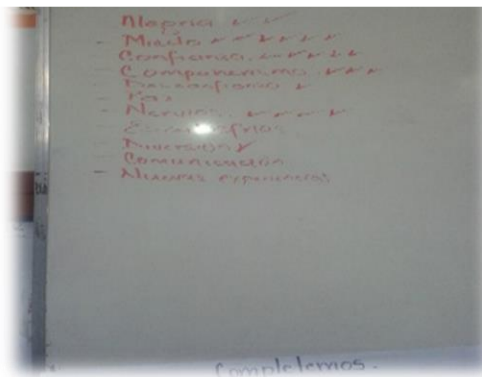 Alegria ✓ ✓
- Miedo ✓ ✓ ✓ ✓ ✓ ✓
- Confianza. ✓ ✓ ✓ ✓ ✓
- Compañerismo. ✓ ✓ ✓
- Paz
- Nervios. ✓ ✓ ✓ ✓
- Diversión ✓
- Comunicación
- Nuevas experiencias
Completemos.